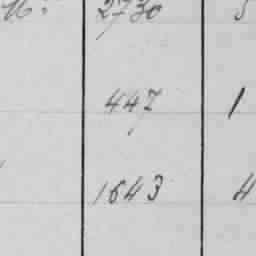 2730 5
447 1
1643 4